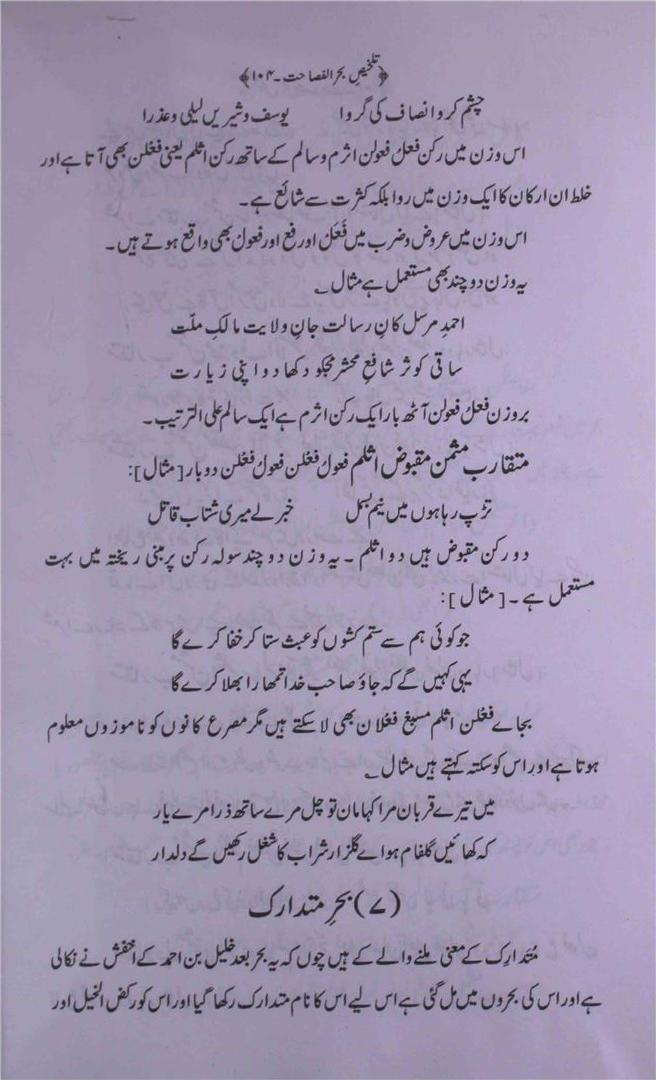 ﴿تلخیصِ بحر الفصاحت۔۱۰۴﴾
چشم کرو انصاف کی گر وا یوسف و شیریں لیلی و عذرا
اس وزن میں رکن فعلُ فعولن اثرم و سالم کے ساتھ رکن اثلم یعنی فعْلن بھی آتا ہے اور
خلط ان ارکان کا ایک وزن میں روا بلکہ کثرت سے شائع ہے۔
اس وزن میں عروض و ضرب میں فَعَل اور فع اور فعول بھی واقع ہوتے ہیں۔
یہ وزن دو چند بھی مستعمل ہے مثال ؎
احمدِ مرسل کانِ رسالت جانِ ولایت مالکِ ملّت
ساقی کوثر شافعِ محشر مجکو دکھا دو اپنی زیارت
بر وزن فعلُ فعولن آٹھ بار ایک رکن اثرم ہے ایک سالم علی الترتیب۔
متقارب مثمن مقبوض اثلم فعولُ فعْلن فعولُ فعْلن دو بار [مثال]:
تڑپ رہا ہوں میں نیم بسمل خبر لے میری شتاب قاتل
دو رکن مقبوض ہیں دو اثلم۔ یہ وزن دو چند سولہ رکن پر مبنی ریختہ میں بہت
مستعمل ہے۔ [مثال]:
جو کوئی ہم سے ستم کشوں کو عبث ستا کر خفا کرے گا
یہی کہیں گے کہ جاؤ صاحب خدا تمھارا بھلا کرے گا
بجاے فعْلن اثلم مسبغ فعْلان بھی لا سکتے ہیں مگر مصرع کانوں کو ناموزوں معلوم
ہوتا ہے اور اس کو سکتہ کہتے ہیں مثال ؎
میں تیرے قربان مرا کہا مان تو چل مرے ساتھ ذرا مرے یار
کہ کھائیں گلفام ہواے گلزار شراب کا شغل رکھیں گے دلدار
(۷) بحرِ متدارک
مُتدارِک کے معنی ملنے والے کے ہیں چوں کہ یہ بحر بعد خلیل بن احمد کے اخفش نے نکالی
ہے اور اس کی بحروں میں مل گئی ہے اس لیے اس کا نام متدارک رکھا گیا اور اس کو رکض الخیل اور